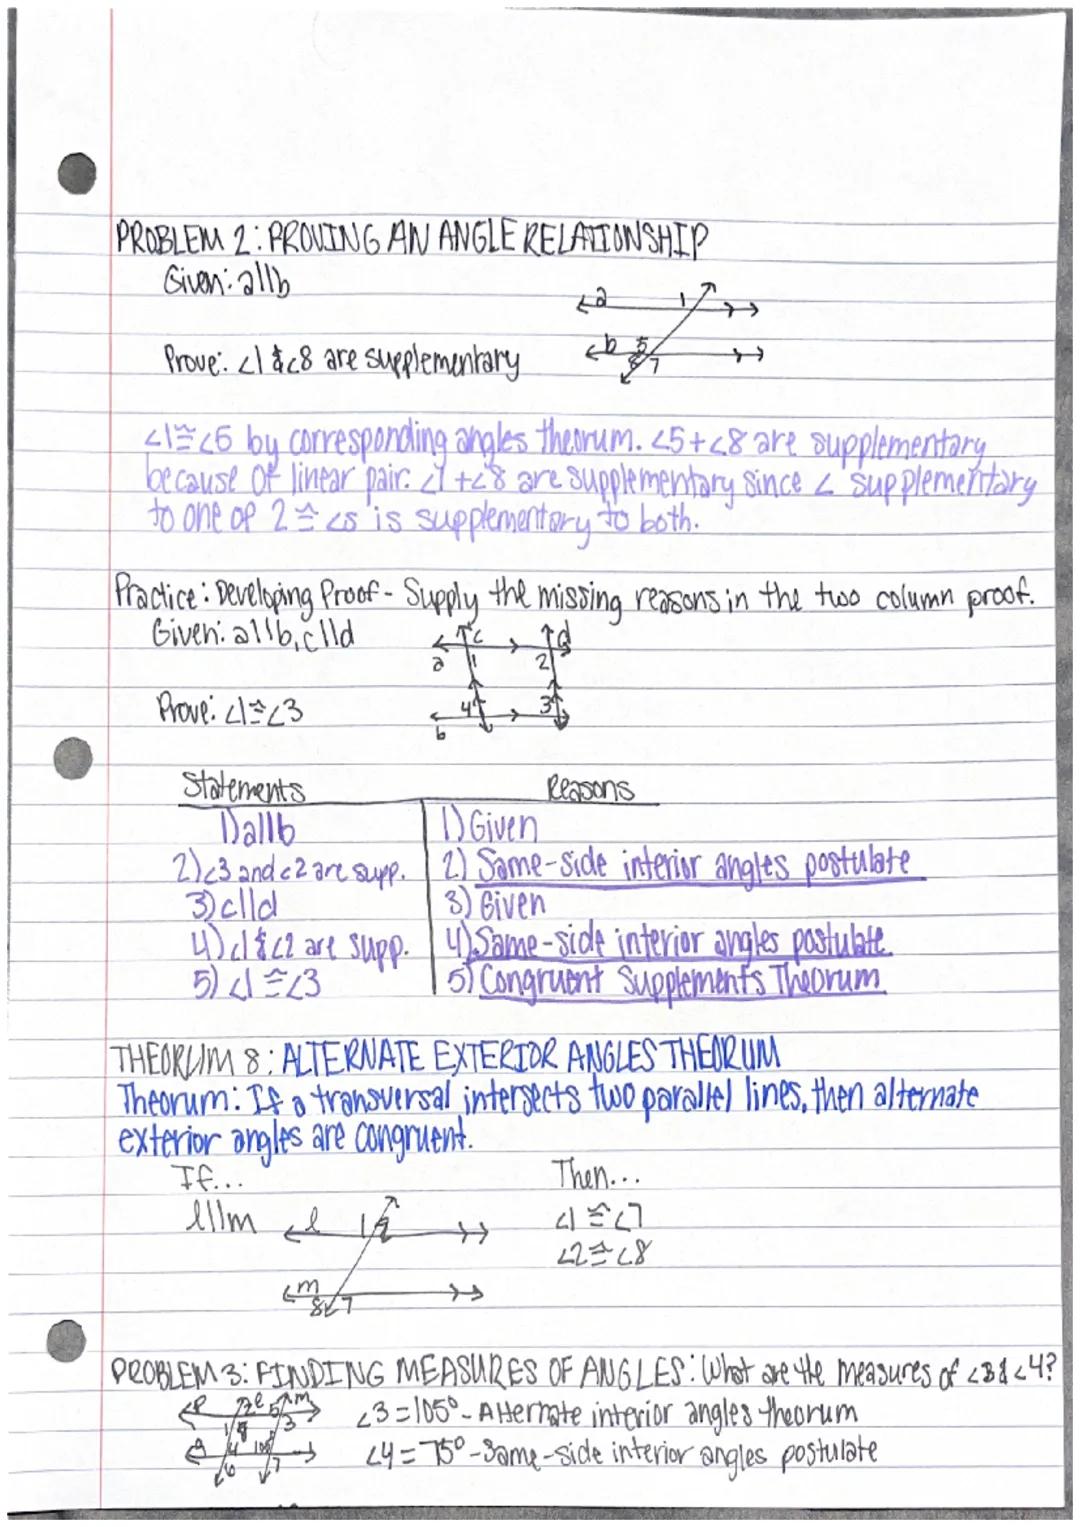 PROBLEM 2: PROVING AN ANGLE RELATIONSHIP
Given: a||b
a 1
b 5
8 7
Prove: ∠1 & ∠8 are supplementary
∠1≅∠5 by corresponding angles theorum. ∠5+∠8 are supplementary
because of linear pair. ∠1+∠8 are supplementary since ∠ supplementary
to one of 2 ≅ ∠s is supplementary to both.
Practice: Developing Proof - Supply the missing reasons in the two column proof.
Given: a||b, c||d
c d
a 1 2
4 3
b
Prove: ∠1≅∠3
Statements Reasons
1) a||b 1) Given
2) ∠3 and ∠2 are supp. 2) Same-side interior angles postulate
3) c||d 3) Given
4) ∠1 & ∠2 are supp. 4) Same-side interior angles postulate
5) ∠1≅∠3 5) Congruent Supplements Theorum
THEORUM 8: ALTERNATE EXTERIOR ANGLES THEORUM
Theorum: If a transversal intersects two parallel lines, then alternate
exterior angles are congruent.
If... Then...
l||m l 1 2 ∠1≅∠7
∠2≅∠8
m
8 7
PROBLEM 3: FINDING MEASURES OF ANGLES: What are the measures of ∠3 & ∠4?
l 5 m
1 8 3 ∠3=105° - Alternate interior angles theorum
4 105 ∠4=75° - Same-side interior angles postulate
6 7